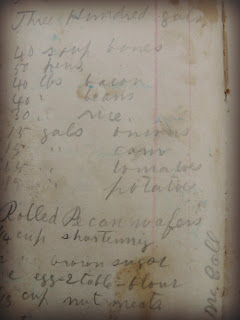 Three Hundred gals
40 soup bones
50 hens
40 lbs bacon
40 " beans
30 " rice
15 gals onions
15 " corn
15 " tomatoes
15 " potatoes
Rolled Pecan wafers
1/4 cup shortening
" brown sugar
egg-2 table-flour
cup nut meats